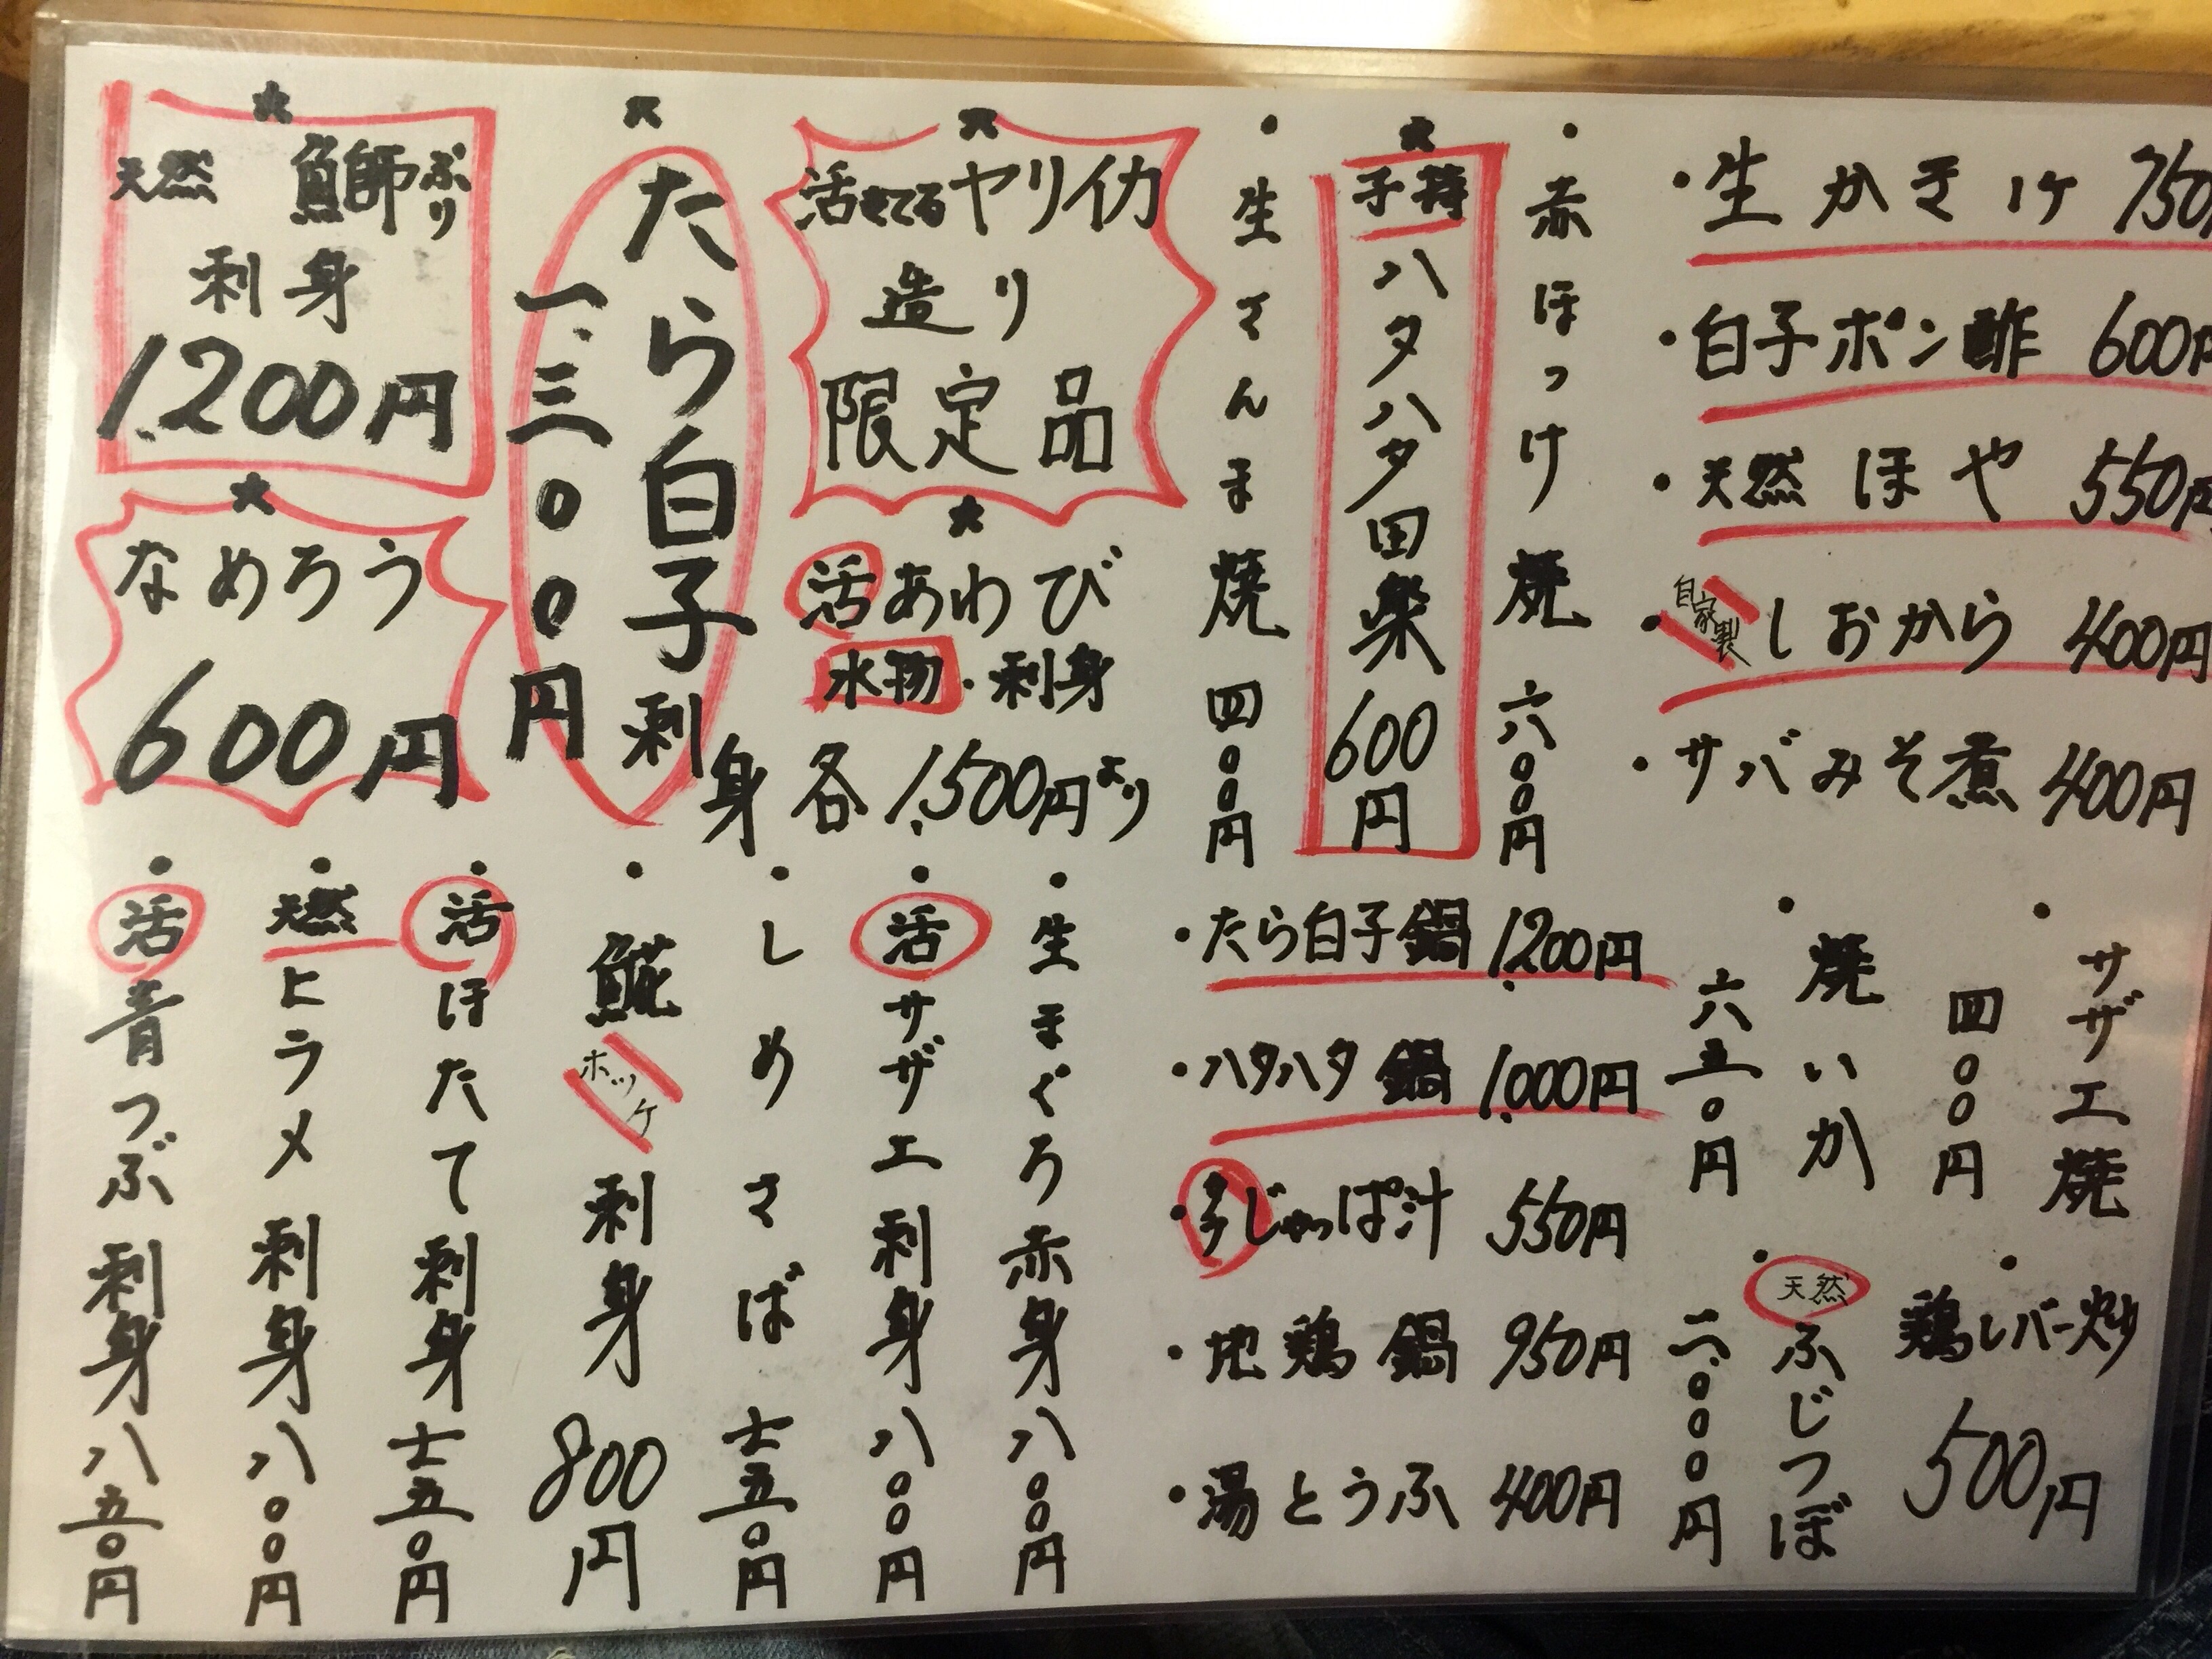 生かき1ケ 750
白子ポン酢 600円
天然 ほや 550円
自家製 しおから 400円
サバみそ煮 400円
赤ほっけ焼 六〇〇円
子持 ハタハタ田楽 600円
生さんま焼 四〇〇円
活きてるヤリイカ
造り
限定品
活あわび
水物・刺身
各1,500円より
たら白子刺身
一、三〇〇円
天然 鰤 ぶり
刺身
1,200円
なめろう
600円
サザエ焼
四〇〇円
焼いか
六五〇円
鶏レバー炒
500円
天然 ふじつぼ
二、〇〇〇円
たら白子鍋 1,200円
ハタハタ鍋 1,000円
じゃっぱ汁 550円
地鶏鍋 950円
湯とうふ 400円
生まぐろ赤身 八〇〇円
活サザエ刺身 八〇〇円
しめさば 七五〇円
𩸽 ホッケ 刺身 800円
活ほたて刺身 七五〇円
天然ヒラメ刺身 八〇〇円
活青つぶ刺身 八五〇円